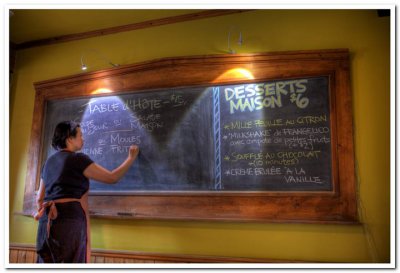 TABLE D'HÔTE - $15
SALADE
MAISON
MOULES
DESSERTS
MAISON $6
* MILLE FEUILLE AU CITRON
* "MILKSHAKE" DE FRANGELICO
avec compote de petites fruits
* SOUFFLE AU CHOCOLAT
(10 minutes)
* CREME BRULÉE À LA
VANILLE